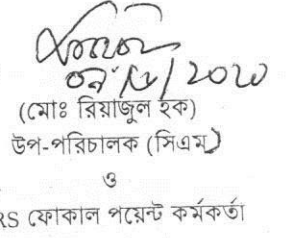 (মোঃ রিয়াজুল হক)
উপ-পরিচালক (সিএম)
ও
RS ফোকাল পয়েন্ট কর্মকর্তা